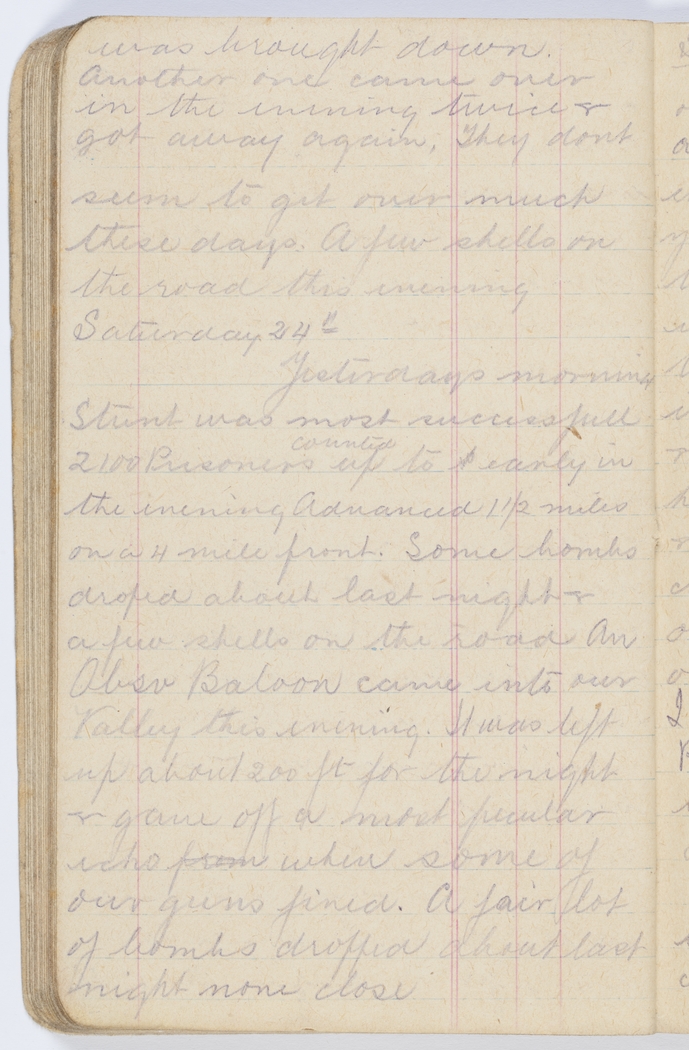 was brought down.
Another one came over
in the evening twice &
got away again, They dont
seem to get over much
these days. A few shells on
the road this evening
Saturday 24th
Yesterdays morning
Stunt was most successfull
2100 Prisoners counted up to early in
the evening Advanced 1 1/2 miles
on a 4 mile front. Some bombs
droped about last night &
a few shells on the road An
Obsv Baloon came into our
Valley this evening. It was left
up about 200 ft for the night
& gave off a most pecular
echo from when some of
our guns fired. A fair lot
of bombs dropped about last
night none close